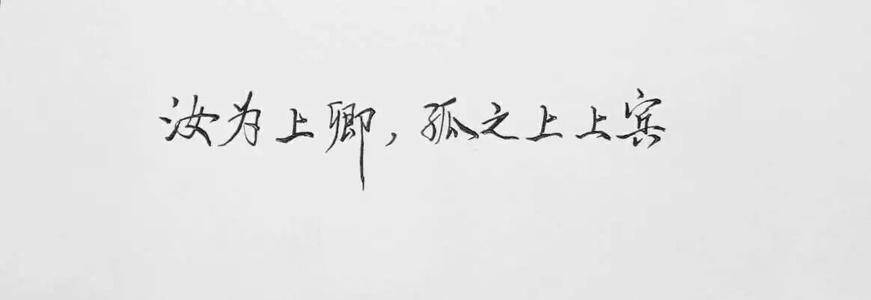 汝为上卿，孤之上上宾